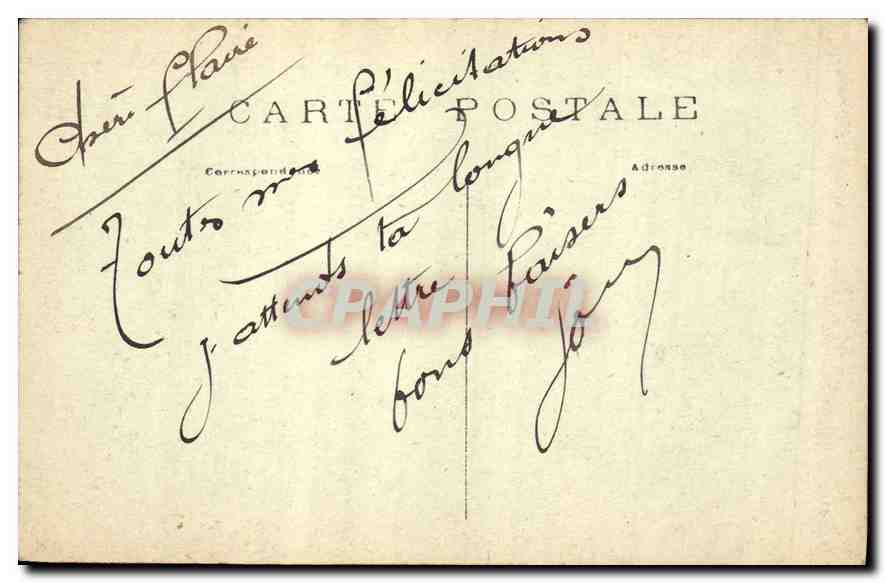 Chère Claire
CARTE POSTALE
Correspondance
Adresse
Toutes mes félicitations
j'attends ta longue
lettre
bons baisers
CPAPHIL